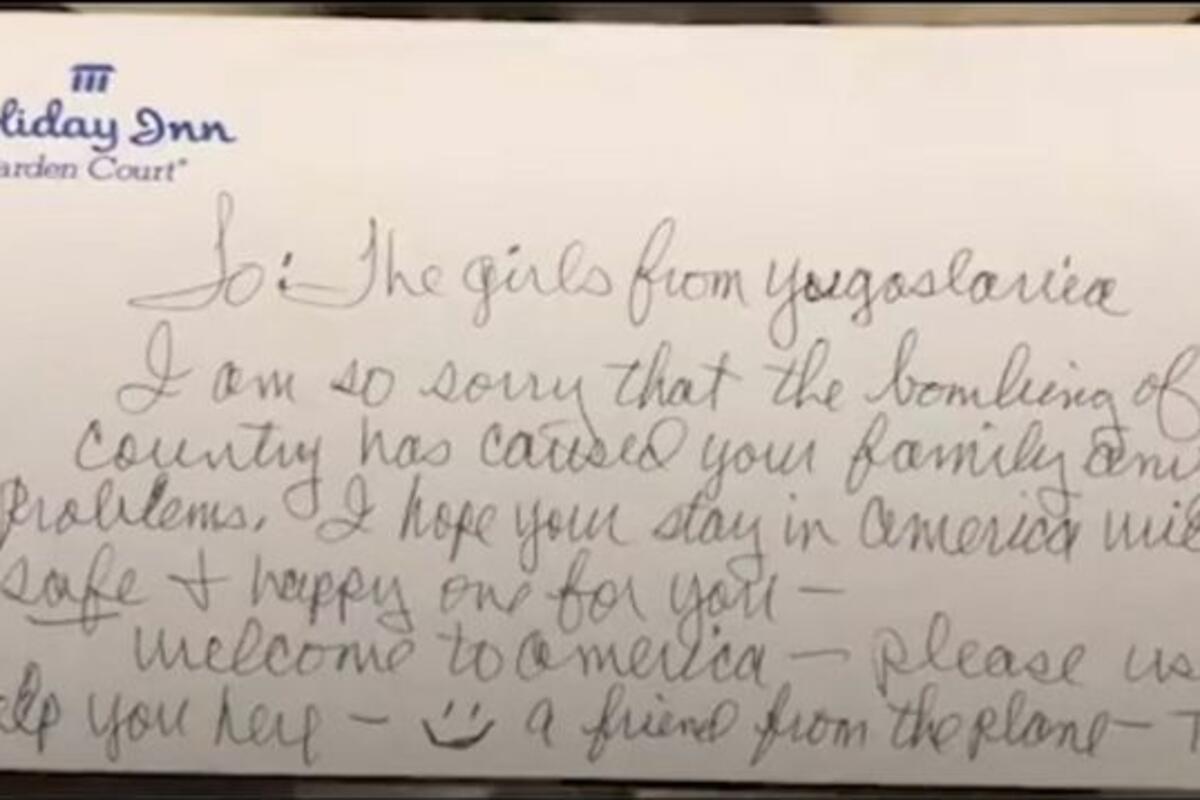 liday Inn
arden Court®
To: The girls from Yugoslavia
I am so sorry that the bombing of
country has caused your family any
Problems. I hope your stay in America will
safe + happy one for you —
Welcome to America — please us
elp you here — a friend from the plane — T